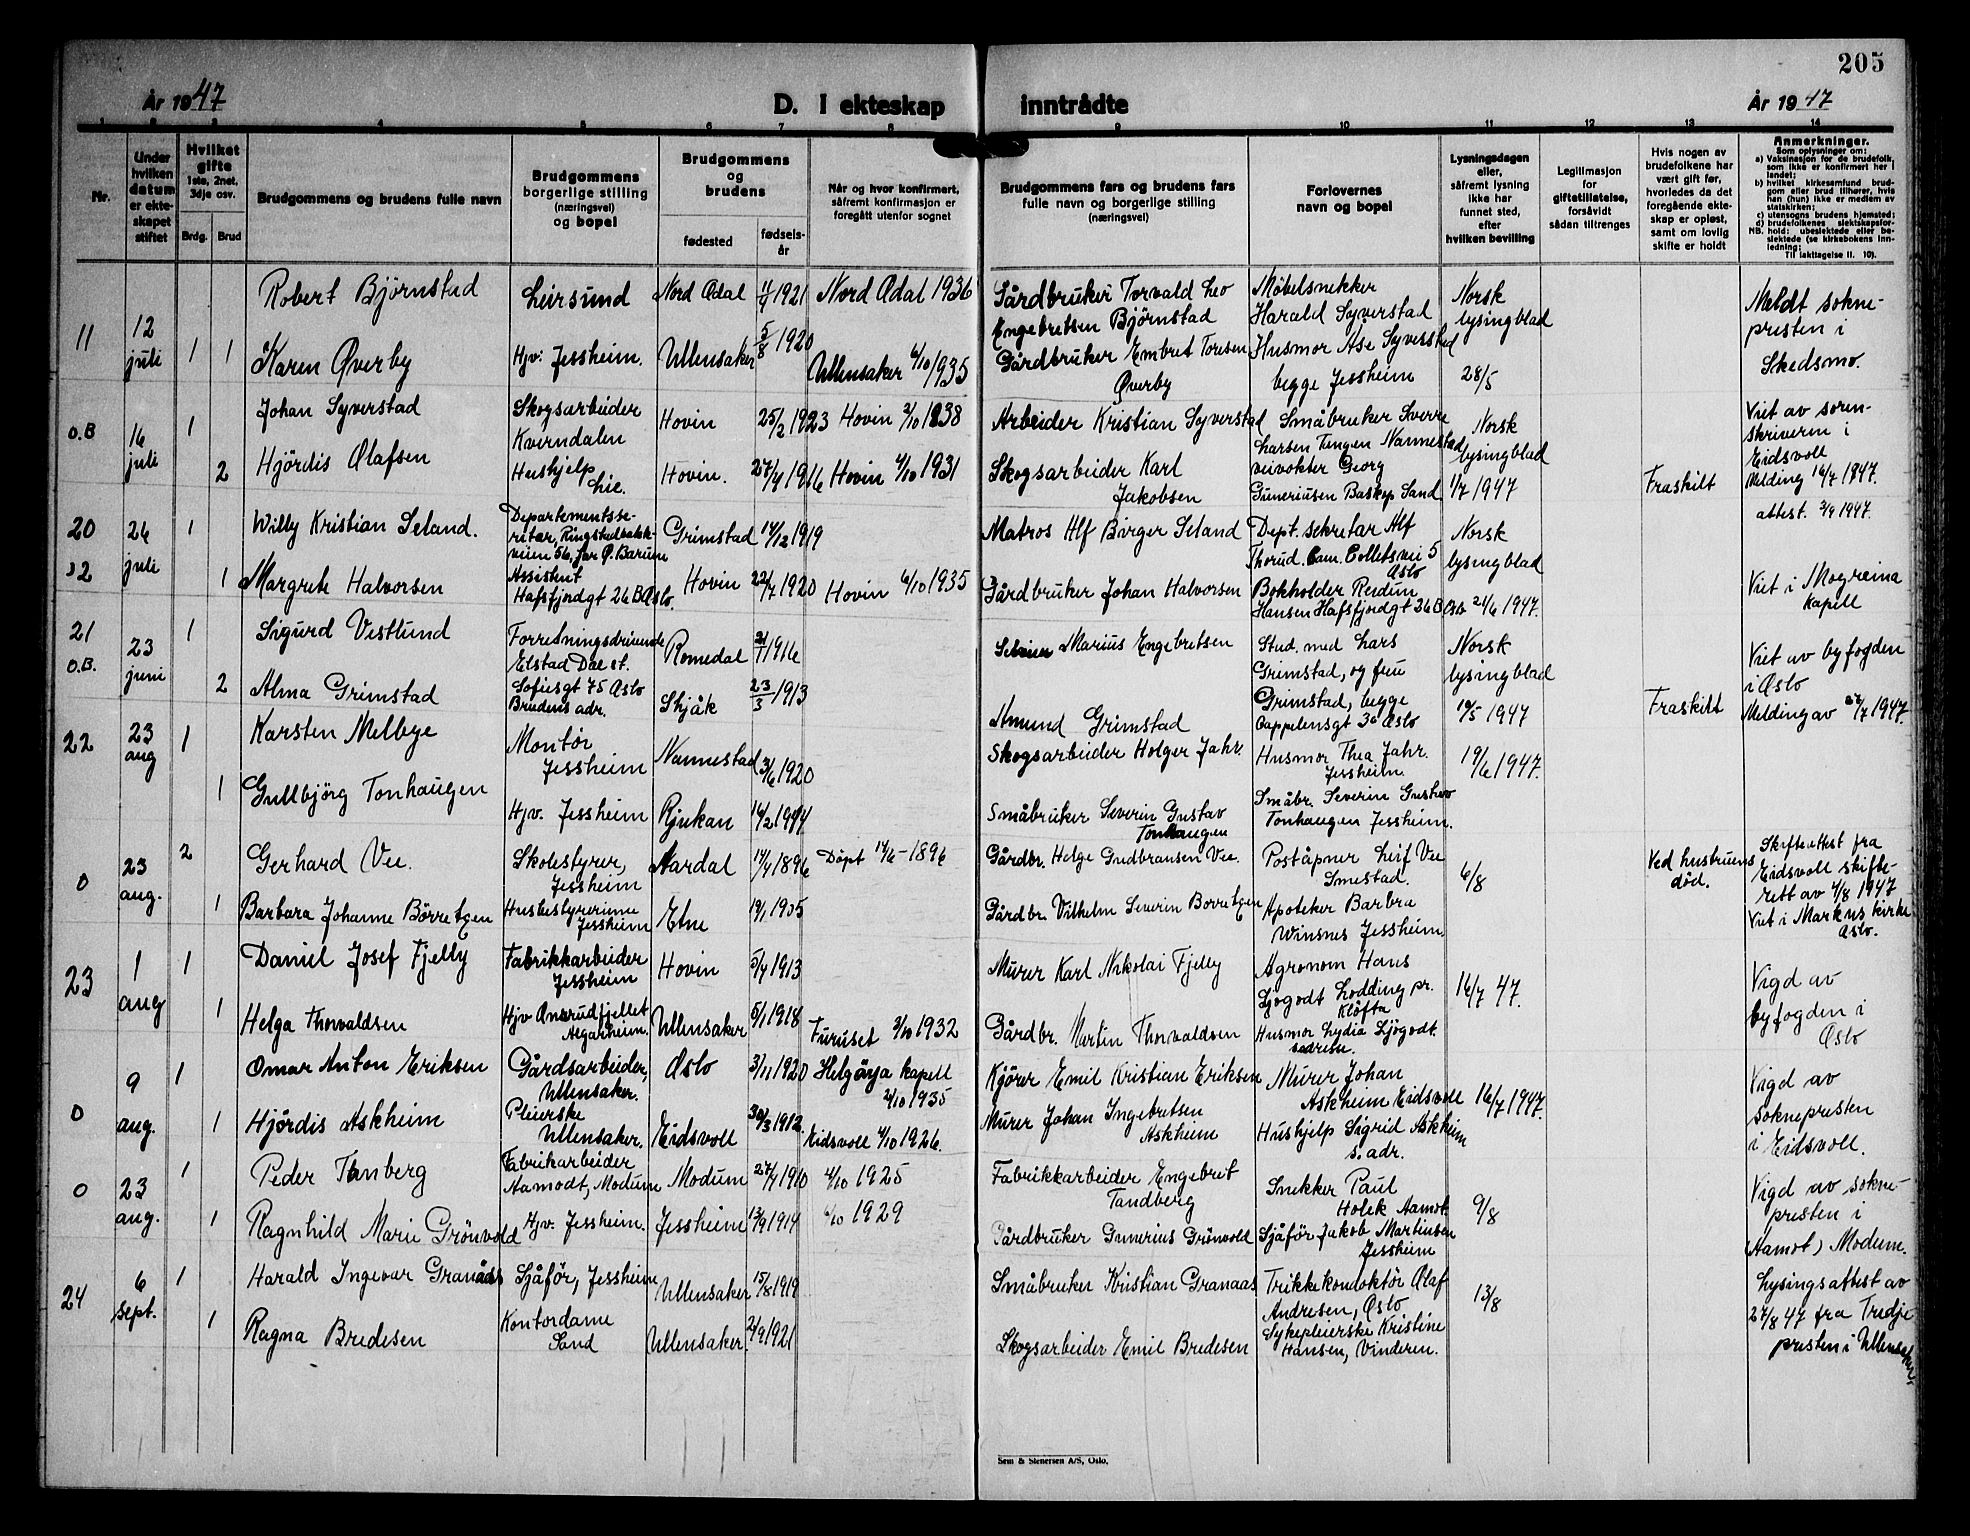 205
År 1947
D. I ekteskap inntrådte
År 1947
1 2 3 4 5 6 7 8 9 10 11 12 13 14
Nr.
Under hvilken datum er ekteskapet stiftet
Hvilket gifte
1ste, 2net, 3dje osv.
Brdg. Brud
Brudgommens og brudens fulle navn
Brudgommens borgerlige stilling (næringsvei) og bopel
Brudgommens og brudens
fødested
fødselsår
Når og hvor konfirmert, såfremt konfirmasjon er foregått utenfor sognet
Brudgommens fars og brudens fars fulle navn og borgerlige stilling (næringsvei)
Forlovernes navn og bopel
Lysningsdagen eller, såfremt lysning ikke har funnet sted, efter hvilken bevilling
Legitimasjon for giftetillatelse, forsåvidt sådan tiltrenges
Hvis nogen av brudefolkene har vært gift før, hvorledes da det foregående ekteskap er opløst, samt om lovlig skifte er holdt
Anmerkninger.
Som oplysninger om:
a) Vaksinasjon for de brudefolk, som ikke er konfirmert her i landet;
b) hvilket kirkesamfund brudgom eller brud tilhører, hvis han (hun) ikke er medlem av statskirken;
c) utensogns brudens hjemsted;
d) brudefolkenes slektskapsforhold: ubeslektede eller beslektede (se kirkebokens innledning;
NB.
Til iakttagelse II. 10).
11 12 juli 1 1
Robert Bjørnstad Leirsund Nord Odal 1921 Nord Odal 1936
Gårdbruker Torvald Leo Engebretsen Bjørnstad
Møbelsnekker Harald Syverstad
Norsk lysingblad 28/5
Meldt soknepresten i Skedsmo.
Karen Øverby Hjv. Jessheim. Ullensaker 5/8 1920 Ullensaker 4/10 1935
Gårdbruker Embret Toresen Øverby
Husmor Ase Syverstad begge Jessheim
o.B 16 juli 1 2
Johan Syverstad Skogsarbeider Kverndalen Hovin 25/2 1923 Hovin 2/10 1938
Arbeider Kristian Syverstad
Småbruker Sverre Larsen Tengen Nannestad
Norsk lysingblad 1/7 1947
Viet av sorenskriveren i Eidsvoll
Melding 16/7 1947.
attest. 2/9 1947.
Hjördis Olafsen Hushjelp Lie. Hovin. 27/4 1916 Hovin 4/10 1931
Skogsarbeider Karl Jakobsen
veivokter Georg Guneriusen Baskop Sand
Fraskilt
20 26 juli 1 1
Willy Kristian Seland. Departementssekretær, Ringstadbakkveien 56, Jar Ø. Bærum Grimstad 14/12 1919
Matros Alf Birger Seland
Dept. sekretær Alf Thorud. Cam. Colletsvei 5 Oslo
Norsk lysingblad 24/6 1947.
Viet i Mogreina kapell
Margrete Halvorsen Assistent Hafsfjordgt 26 B Oslo. Hovin 22/7 1920 Hovin 6/10 1935
Gårdbruker Johan Halvorsen
Bokholder Reidun Hansen Hafsfjordgt 36 B Oslo
21 o.B. 23 juni 1 2
Sigurd Vestlund Forretningsdrivende Elstad Dal st. Romedal 1916
Marius Engebretsen
Stud. med Lars Grimstad, og fru Grimstad, begge Cappelensgt 3a Oslo
Norsk lysingblad 19/5 1947
Viet av byfogden i Oslo
Alma Grimstad Sofiesgt 75 Oslo Brudens adr. Skjåk 23/3 1913
Amund Grimstad
Fraskilt
Melding av 1947.
22 23 aug 1 1
Karsten Melbye Montör Jessheim Nannestad 3/6 1920
Skogsarbeider Holger Jahr.
Husmor Thea Jahr. Jessheim
19/6 1947.
Gullbjörg Tonhaugen Hjv. Jessheim Rjukan
Småbruker Severin Gustav Tonhaugen
Småbr. Severin Gustav Tonhaugen Jessheim.
0 23 aug. 2 1
Gerhard Vee. Skolestyrer, Jessheim Aardal 14/4 1896 Döpt 14/6 - 1896
Gårdbr. Helge Gudbransen Vee.
Poståpner Leif Vee Smestad.
6/8
Ved hustruens död.
Skifteattest fra Eidsvoll skifterett av 4/8 1947
Viet i Markus kirke Oslo.
Barbara Johanne Börretzen Husbestyrerinne Jessheim Etne 19/1 1905
Gårdbr. Vilhelm Severin Borretzen
Apoteker Barbra Winsnes Jessheim.
23 1 aug 1 1
Daniel Josef Fjelly Fabrikkarbeider Jessheim Hovin 5/4 1913
Murer Karl Nikolai Fjelly
Agronom Hans Ljogodt Lodding pr. Klöfta
16/7 47.
Vigd av byfogden i Oslo
Helga Thorvaldsen Hjv Algarheim. Ullensaker 5/1 1918 Furuset 2/10 1932
Gårdbr. Martin Thorvaldsen
Husmor Lydia Ljögodt.
0 9 aug. 1 1
Omar Anton Eriksen Gårdsarbeider, Ullensaker. Oslo 3/11 1920 Helgöya kapell 2/10 1935
Kjörer Emil Kristian Eriksen
Murer Johan Askheim Eidsvoll
16/7 1947.
Vigd av soknepresten i Eidsvoll.
Hjördis Askheim Pleierske Ullensaker. Eidsvoll 30/3 1912 Eidsvoll 4/10 1926.
Murer Johan Ingebretsen Askheim
Hushjelp Sigrid Askheim s. adr.
0 23 aug. 1 1
Peder Tanberg Fabrikarbeider Aamodt, Modum Modum 27/4 1910 4/10 1925
Fabrikkarbeider Engebret Tandberg
Snekker Paul Holek Aamot
9/8
Vigd av soknepresten i (Aamot) Modum.
Ragnhild Marie Grönvold Hjv. Jessheim. Jessheim 13/9 1914 6/10 1929
Gårdbruker Gunerius Grönvold
Sjåför Jakob Martinsen Jessheim
24 6 sept. 1 1
Harald Ingevar Granaas Sjåför, Jessheim Ullensaker 15/8 1919
Småbruker Kristian Granaas
Trikkekonduktör Olaf Andresen, Oslo
13/8
Lysingsattest av 27/8 47 fra Tredje presten i Ullensaker.
Ragna Bredesen Kontordame Sand Ullensaker. 2/9 1921
Skogsarbeider Emil Bredesen
Sykepleierske Kristine Hansen, Vinderen.
Sem & Stenersen A/S, Oslo.